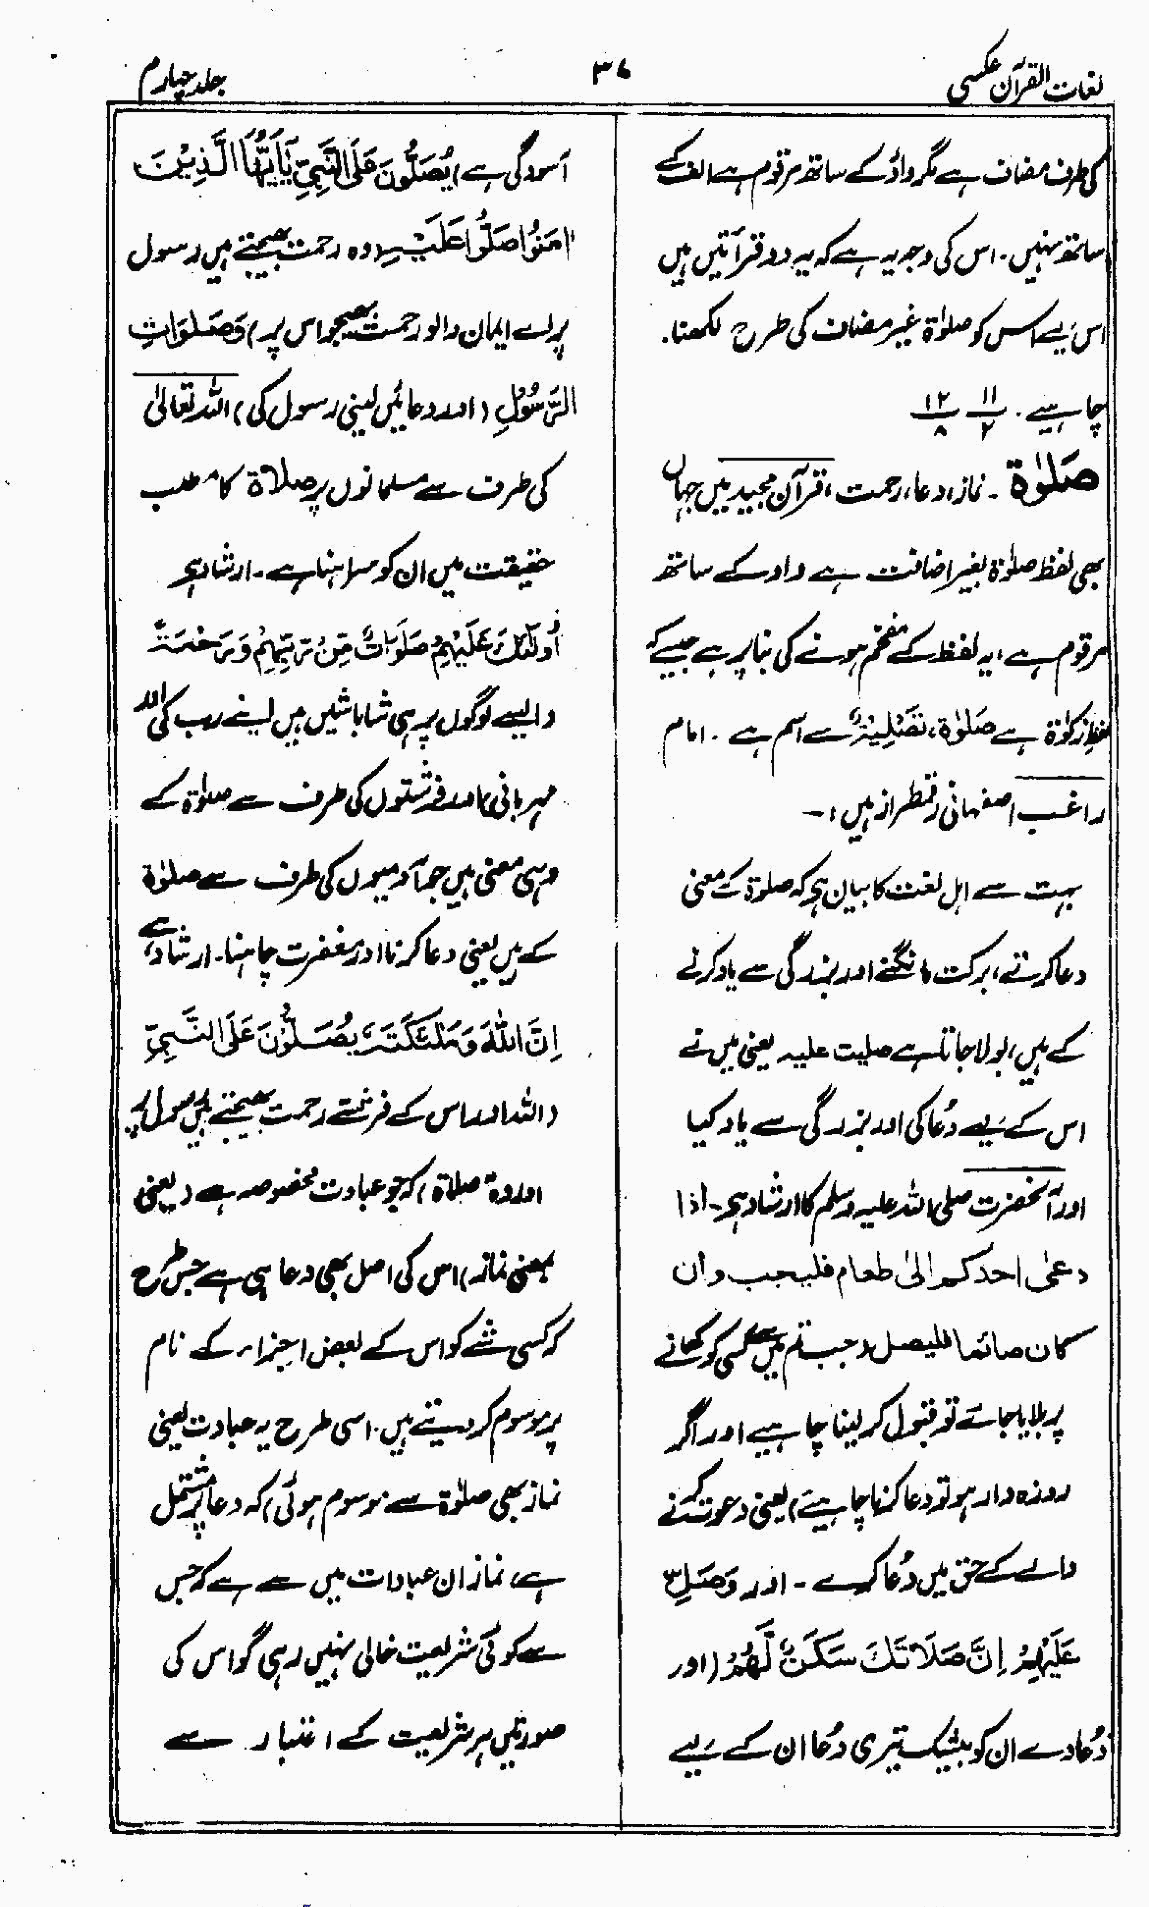 لغات القرآن عکسی
۳۷
جلد چہارم
کی طرف مضاف ہے مگر واؤ کے ساتھ مرقوم ہے الف کے
ساتھ نہیں۔ اس کی وجہ یہ ہے کہ یہ دو قرآتیں ہیں
اس لیے اس کو صلوٰۃ غیر مضاف کی طرح لکھنا
چاہیے۔ ۱۱/۲ ۱۲/۸
صَلٰوۃ۔ نماز، دعا، رحمت، قرآن مجید میں جہاں
بھی لفظ صلوٰۃ بغیر اضافت ہے واو کے ساتھ
مرقوم ہے، یہ لفظ کے مفخم ہونے کی بنا پر ہے جیسے کہ
لفظ زکوٰۃ ہے صَلٰوۃ، تَصْلِیَۃٌ سے اسم ہے۔ امام
راغب اصفہانی رقمطراز ہیں:۔
بہت سے اہل لغت کا بیان ہے کہ صلوٰۃ کے معنی
دعا کرنے، برکت مانگنے اور بزرگی سے یاد کرنے
کے ہیں، بولا جاتا ہے صلیت علیہ یعنی میں نے
اس کے لیے دُعا کی اور بزرگی سے یاد کیا
اور آنحضرت صلی اللہ علیہ وسلم کا ارشاد ہے۔ اذا
دعی احدکم الیٰ طعام فلیجب وان
کان صائما فلیصل (جب تم میں سے کسی کو کھانے
پر بلایا جائے تو قبول کر لینا چاہیے اور اگر
روزہ دار ہو تو دعا کرنا چاہیے) یعنی دعوت کرنے
والے کے حق میں دُعا کرے۔ اور وَصَلِّ
عَلَیْہِمْ اِنَّ صَلَاتَکَ سَکَنٌ لَّہُمْ (اور
دُعا دے ان کو بیشک تیری دُعا ان کے لیے
آسودگی ہے) یُصَلُّونَ عَلَی النَّبِیِّ یٰاَیُّہَا الَّذِیْنَ
اٰمَنُوْا صَلُّوْا عَلَیْہِ (وہ رحمت بھیجتے ہیں رسول
پر اے ایمان والو رحمت بھیجو اس پر) وَصَلَوَاتِ
الرَّسُوْلِ (اور دعائیں لینی رسول کی) اللہ تعالیٰ
کی طرف سے مسلمانوں پر صلاۃ کا مطلب
حقیقت میں ان کو سراہنا ہے۔ ارشاد ہے
اُولٰئِکَ عَلَیْہِمْ صَلَوَاتٌ مِّنْ رَّبِّہِمْ وَرَحْمَۃٌ
(ایسے لوگوں پر ہی شاباشیں ہیں اپنے رب کی اور
مہربانی) اور فرشتوں کی طرف سے صلوٰۃ کے
وہی معنی ہیں جو آدمیوں کی طرف سے صلوٰۃ
کے ہیں یعنی دعا کرنا اور مغفرت چاہنا۔ ارشاد ہے
اِنَّ اللّٰہَ وَمَلٰئِکَتَہٗ یُصَلُّوْنَ عَلَی النَّبِیِّ
(اللہ اور اس کے فرشتے رحمت بھیجتے ہیں رسول پر)
اور وہ صلاۃ، کہ جو عبادت مخصوصہ ہے (یعنی
بمعنی نماز) اس کی اصل بھی دعا ہی ہے جس طرح
کہ کسی شے کو اس کے بعض اجزاء کے نام
پر موسوم کر دیتے ہیں۔ اسی طرح یہ عبادت یعنی
نماز بھی صلوٰۃ سے موسوم ہوئی) کہ دعا پر مشتمل
ہے، نماز ان عبادات میں سے ہے کہ جس
سے کوئی شریعت خالی نہیں رہی گو اس کی
صورتیں ہر شریعت کے اعتبار سے